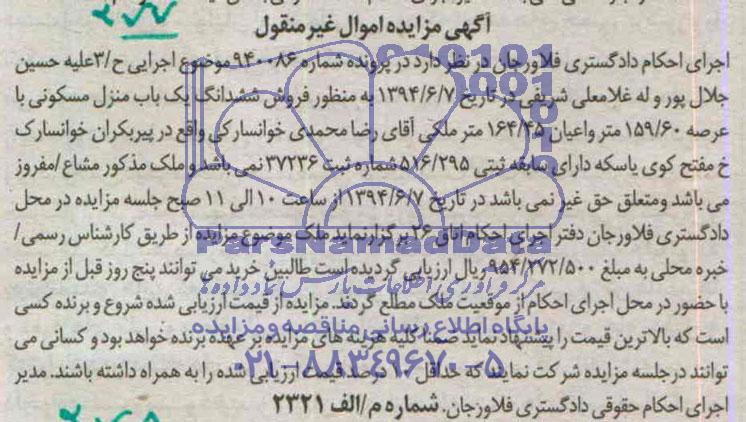 آگهی مزایده اموال غیر منقول
اجرای احکام دادگستری فلاورجان در نظر دارد در پرونده شماره ۹۴۰۰۸۶ موضوع اجرایی ح/۳علیه حسین
جلال پور و له غلامعلی شریفی در تاریخ ۱۳۹۴/۶/۷ به منظور فروش ششدانگ یک باب منزل مسکونی با
عرصه ۱۵۹/۶۰ متر واعیان ۱۶۴/۴۵ متر ملکی آقای رضا محمدی خوانسارکی واقع در پیربکران خوانسارک
خ مفتح کوی یاسکه دارای سابقه ثبتی ۵۱۶/۲۹۵ شماره ثبت ۳۷۲۳۶ نمی باشد و ملک مذکور مشاع/مفروز
می باشد ومتعلق حق غیر نمی باشد در تاریخ ۱۳۹۴/۶/۷از ساعت ۱۰ الی ۱۱ صبح جلسه مزایده در محل
دادگستری فلاورجان دفتر اجرای احکام اتاق ۲۶ برگزار نماید ملک موضوع مزایده از طریق کارشناس رسمی/
خبره محلی به مبلغ ۹۵۴/۲۷۲/۵۰۰ ریال ارزیابی گردیده است طالبین خرید می توانند پنج روز قبل از مزایده
با حضور در محل اجرای احکام از موقعیت ملک مطلع گردند. مزایده از قیمت ارزیابی شده شروع و برنده کسی
است که بالاترین قیمت را پیشنهاد نماید ضمنا کلیه هزینه های مزایده بر عهده برنده خواهد بود و کسانی می
توانند در جلسه مزایده شرکت نمایند که حداقل ۱۰ درصد قیمت ارزیابی شده را به همراه داشته باشند. مدیر
اجرای احکام حقوقی دادگستری فلاورجان. شماره م/الف ۲۳۲۱
ParsNamadData
مرکز فرآوری اطلاعات پارس نماد داده ها
پایگاه اطلاع رسانی مناقصه و مزایده
۰۲۱-۸۸۳۴۹۶۷۰-۵